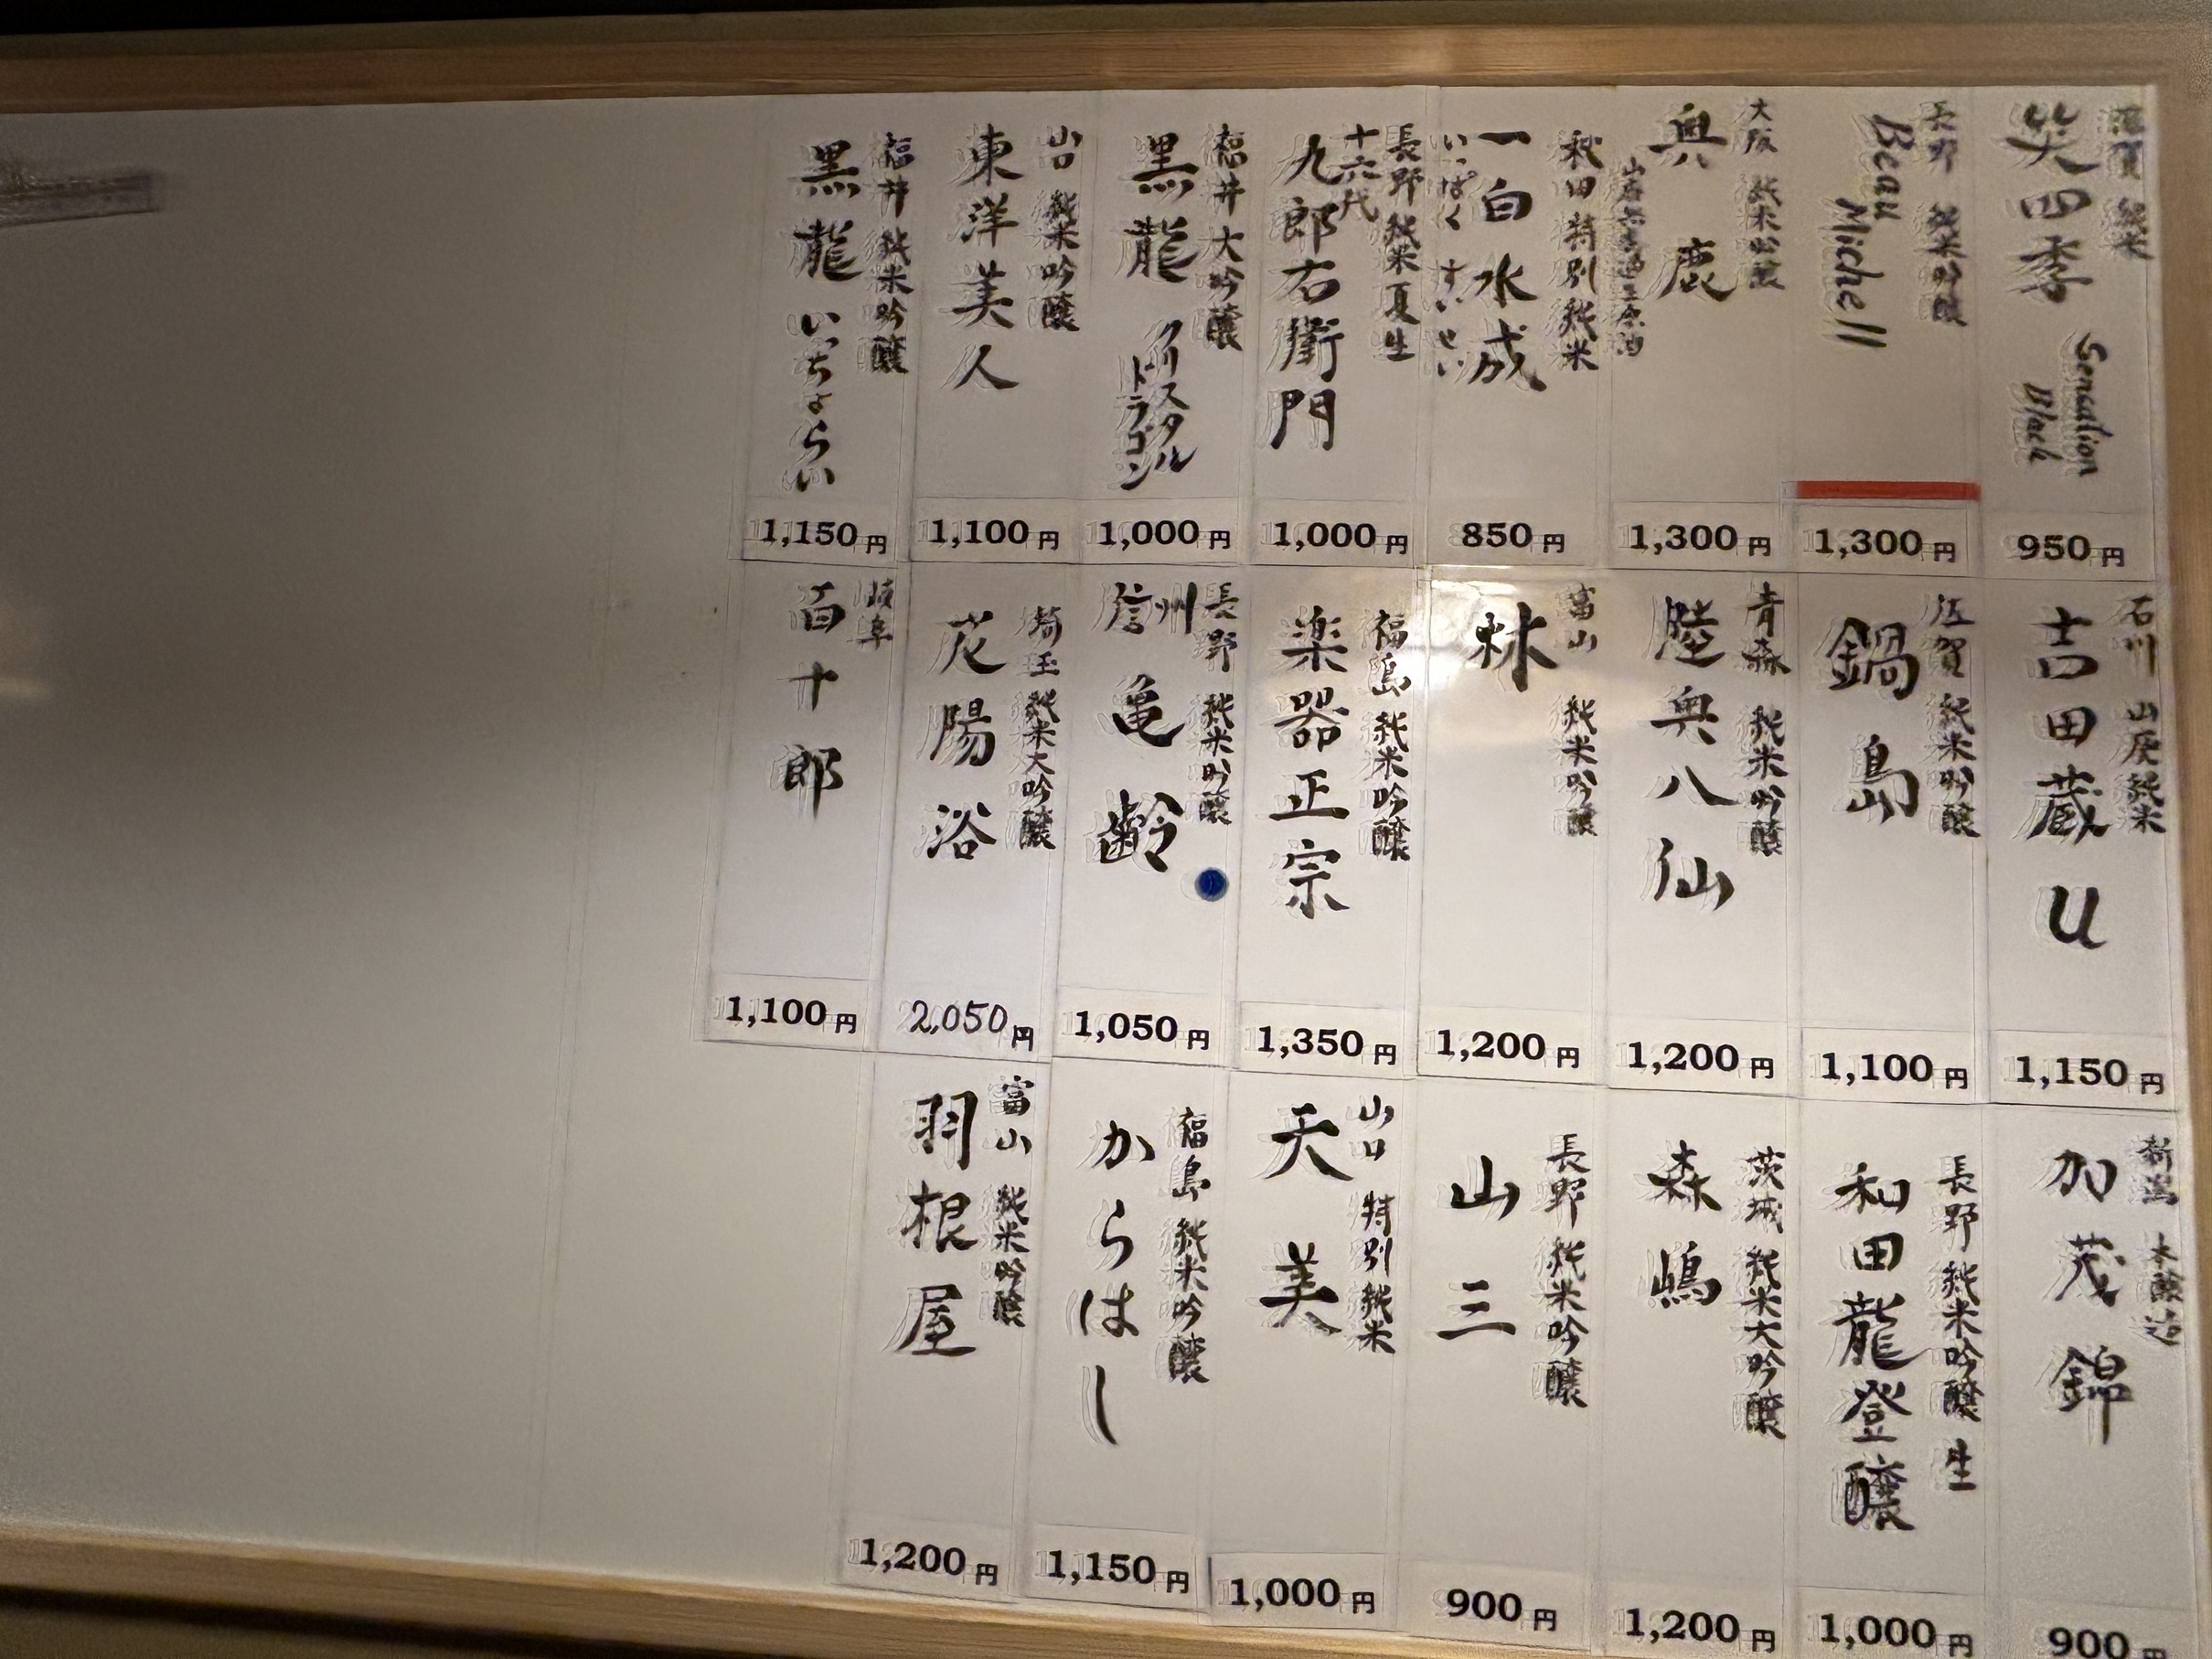 滋賀 純米
笑四季
Sensation
Black
950円
長野 純米吟醸
Beau
Michell
1,300円
大阪 純米吟醸
奥鹿
1,300円
秋田 特別純米
一白水成
いっぱく すいせい
850円
長野 純米夏生
十六代
九郎右衛門
1,000円
福井 大吟醸
黒龍
クリスタル
ドラゴン
1,000円
山口 純米吟醸
東洋美人
1,100円
福井 純米吟醸
黒龍 いっちょらい
1,150円
石川 山廃純米
吉田蔵 u
1,150円
佐賀 純米吟醸
鍋島
1,100円
青森 純米吟醸
陸奥八仙
1,200円
富山 純米吟醸
林
1,200円
福島 純米吟醸
楽器正宗
1,350円
長野 純米吟醸
信州
亀齢
1,050円
埼玉 純米大吟醸
花陽浴
2,050円
岐阜
百十郎
1,100円
新潟 本醸造
加茂錦
900円
長野 純米吟醸 生
和田龍登醸
1,000円
茨城 純米大吟醸
森嶋
1,200円
長野 純米吟醸
山三
900円
山口 特別純米
天美
1,000円
福島 純米吟醸
からはし
1,150円
富山 純米吟醸
羽根屋
1,200円